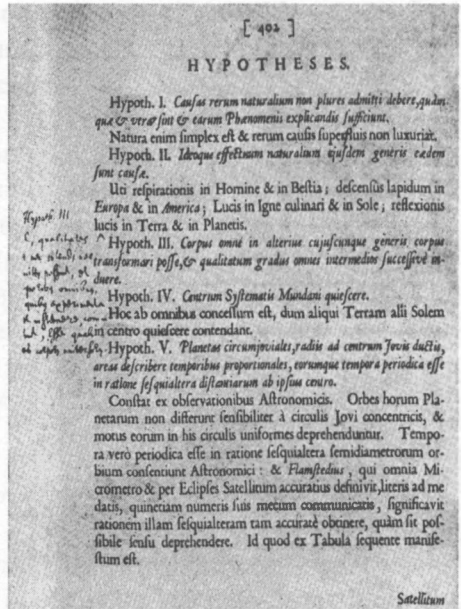 [ 402 ]
HYPOTHESES.
Hypoth. I. Cauſas rerum naturalium non plures admitti debere, quàm
quæ & veræ ſint & earum Phænomenis explicandis ſufficiunt.
Natura enim ſimplex eſt & rerum cauſis ſuperfluis non luxuriat.
Hypoth. II. Ideoque effectuum naturalium ejuſdem generis eædem
ſunt cauſæ.
Uti reſpirationis in Homine & in Beſtia; deſcenſûs lapidum in
Europa & in America; Lucis in Igne culinari & in Sole; reflexionis
lucis in Terra & in Planetis.
Hypoth. III
Hypoth. III. Corpus omne in alterius cujuſcunque generis corpus
transformari poſſe, & qualitatum gradus omnes intermedios ſucceſſivè in-
duere.
Hypoth. IV. Centrum Syſtematis Mundani quieſcere.
Hoc ab omnibus conceſſum eſt, dum aliqui Terram alii Solem
in centro quieſcere contendant.
Hypoth. V. Planetas circumjoviales, radiis ad centrum Jovis ductis,
areas deſcribere temporibus proportionales, eorumque tempora periodica eſſe
in ratione ſeſquialtera diſtantiarum ab ipſius centro.
Conſtat ex obſervationibus Aſtronomicis. Orbes horum Pla-
netarum non differunt ſenſibiliter à circulis Jovi concentricis, &
motus eorum in his circulis uniformes deprehenduntur. Tempo-
ra verò periodica eſſe in ratione ſeſquialtera ſemidiametrorum or-
bium conſentiunt Aſtronomici: & Flamſtedius, qui omnia Mi-
crometro & per Eclipſes Satellitum accuratius definivit, literis ad me
datis, quinetiam numeris ſuis mecum communicatis, ſignificavit
rationem illam ſeſquialteram tam accuratè obtinere, quàm ſit poſ-
ſibile ſenſu deprehendere. Id quod ex Tabula ſequente manife-
ſtum eſt.
Satellitum